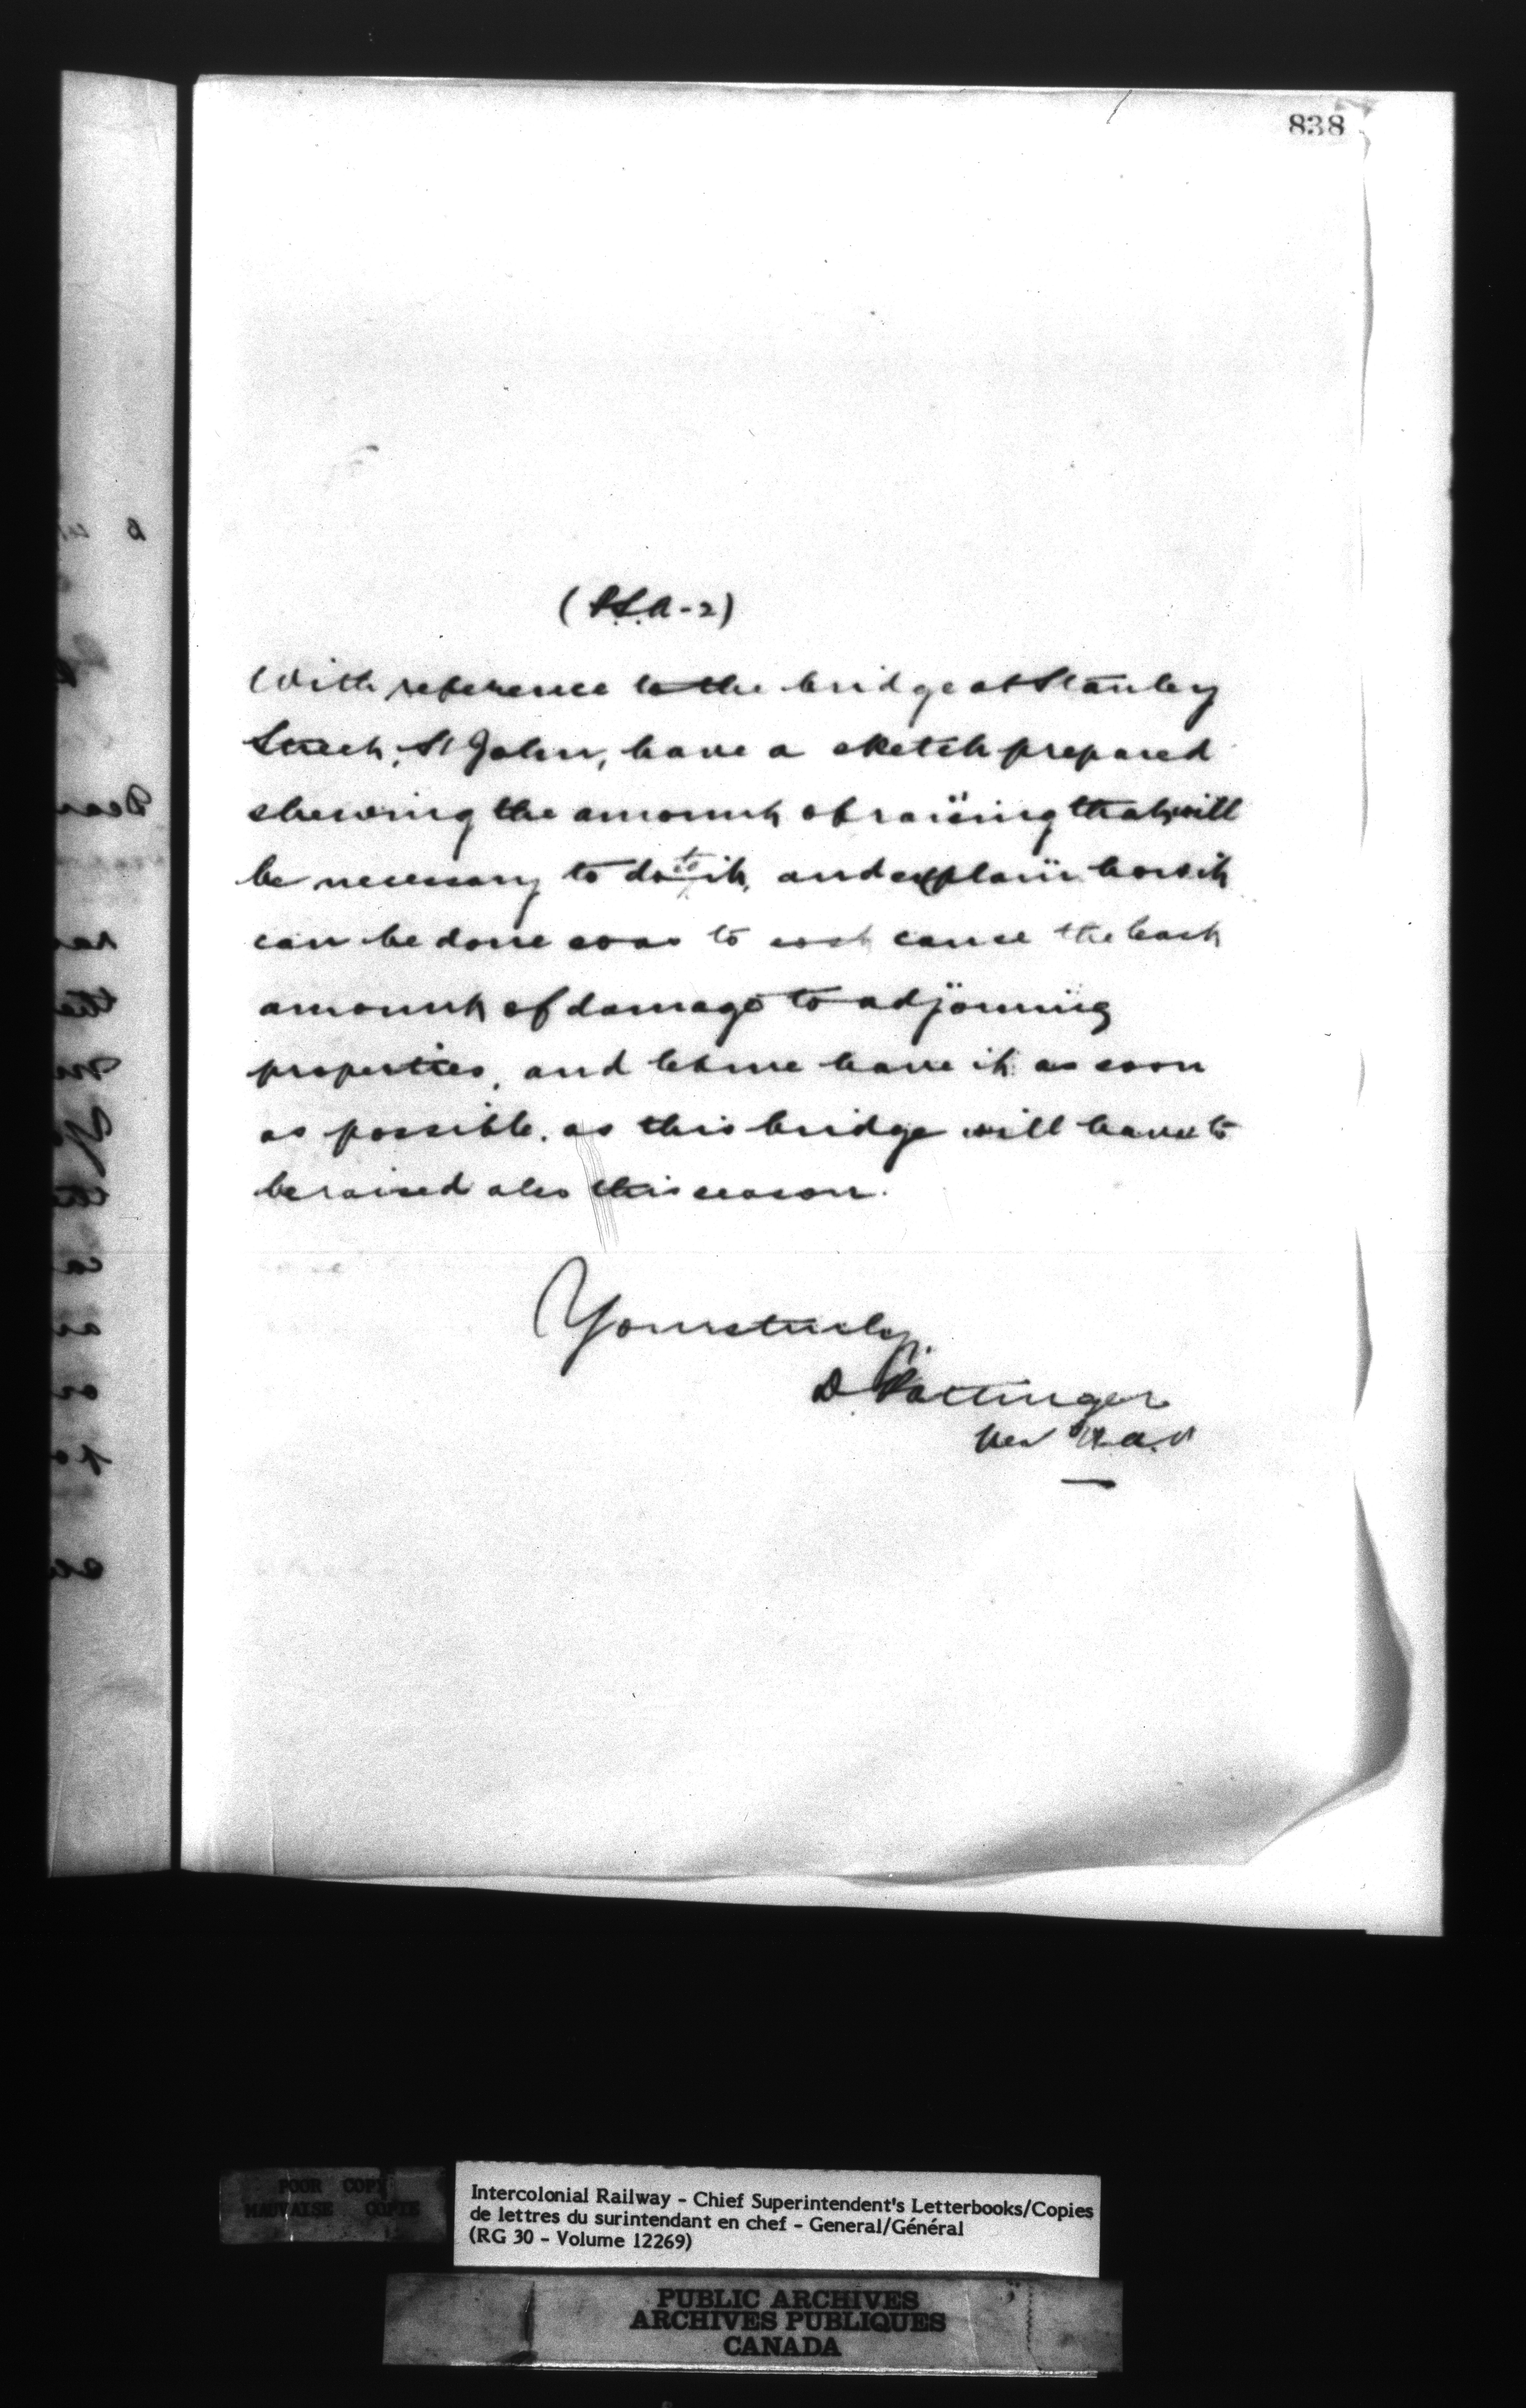 838
(P.S.A-2)
With reference to the bridge at Stanley
Street, St John, have a sketch prepared
shewing the amount of raising that will
be necessary to do to it, and explain how it
can be done so as to cost cause the least
amount of damage to adjoining
properties, and let me have it as soon
as possible, as this bridge will have to
be raised also this season.
Yours truly,
D. Pottinger
POOR COPY
MAUVAISE COPIE
Intercolonial Railway - Chief Superintendent's Letterbooks/Copies
de lettres du surintendant en chef - General/Général
(RG 30 - Volume 12269)
PUBLIC ARCHIVES
ARCHIVES PUBLIQUES
CANADA